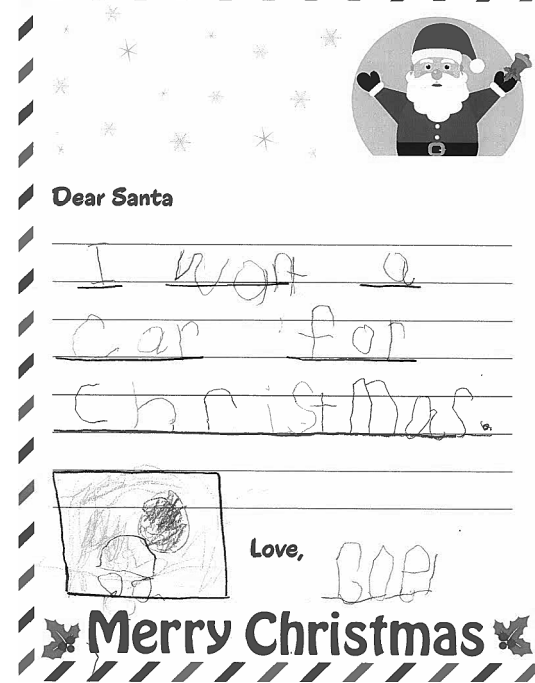 Dear Santa
I want a
car for
christmas.
Love,
Merry Christmas